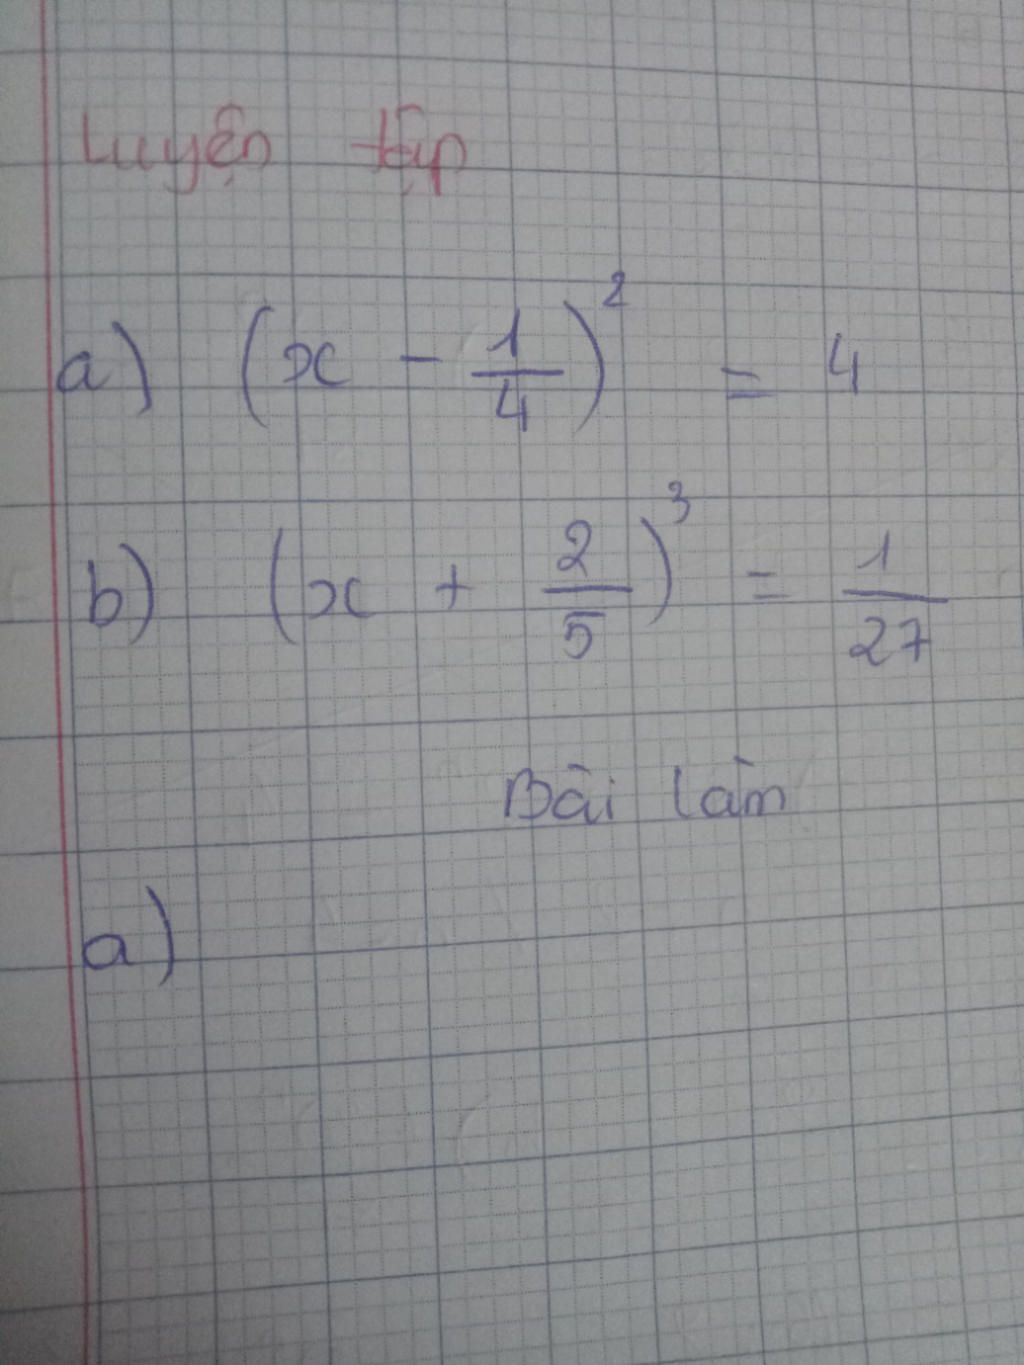 Luyện tập
a) (x - 1/4)² = 4
b) (x + 2/5)³ = 1/27
Bài làm
a)